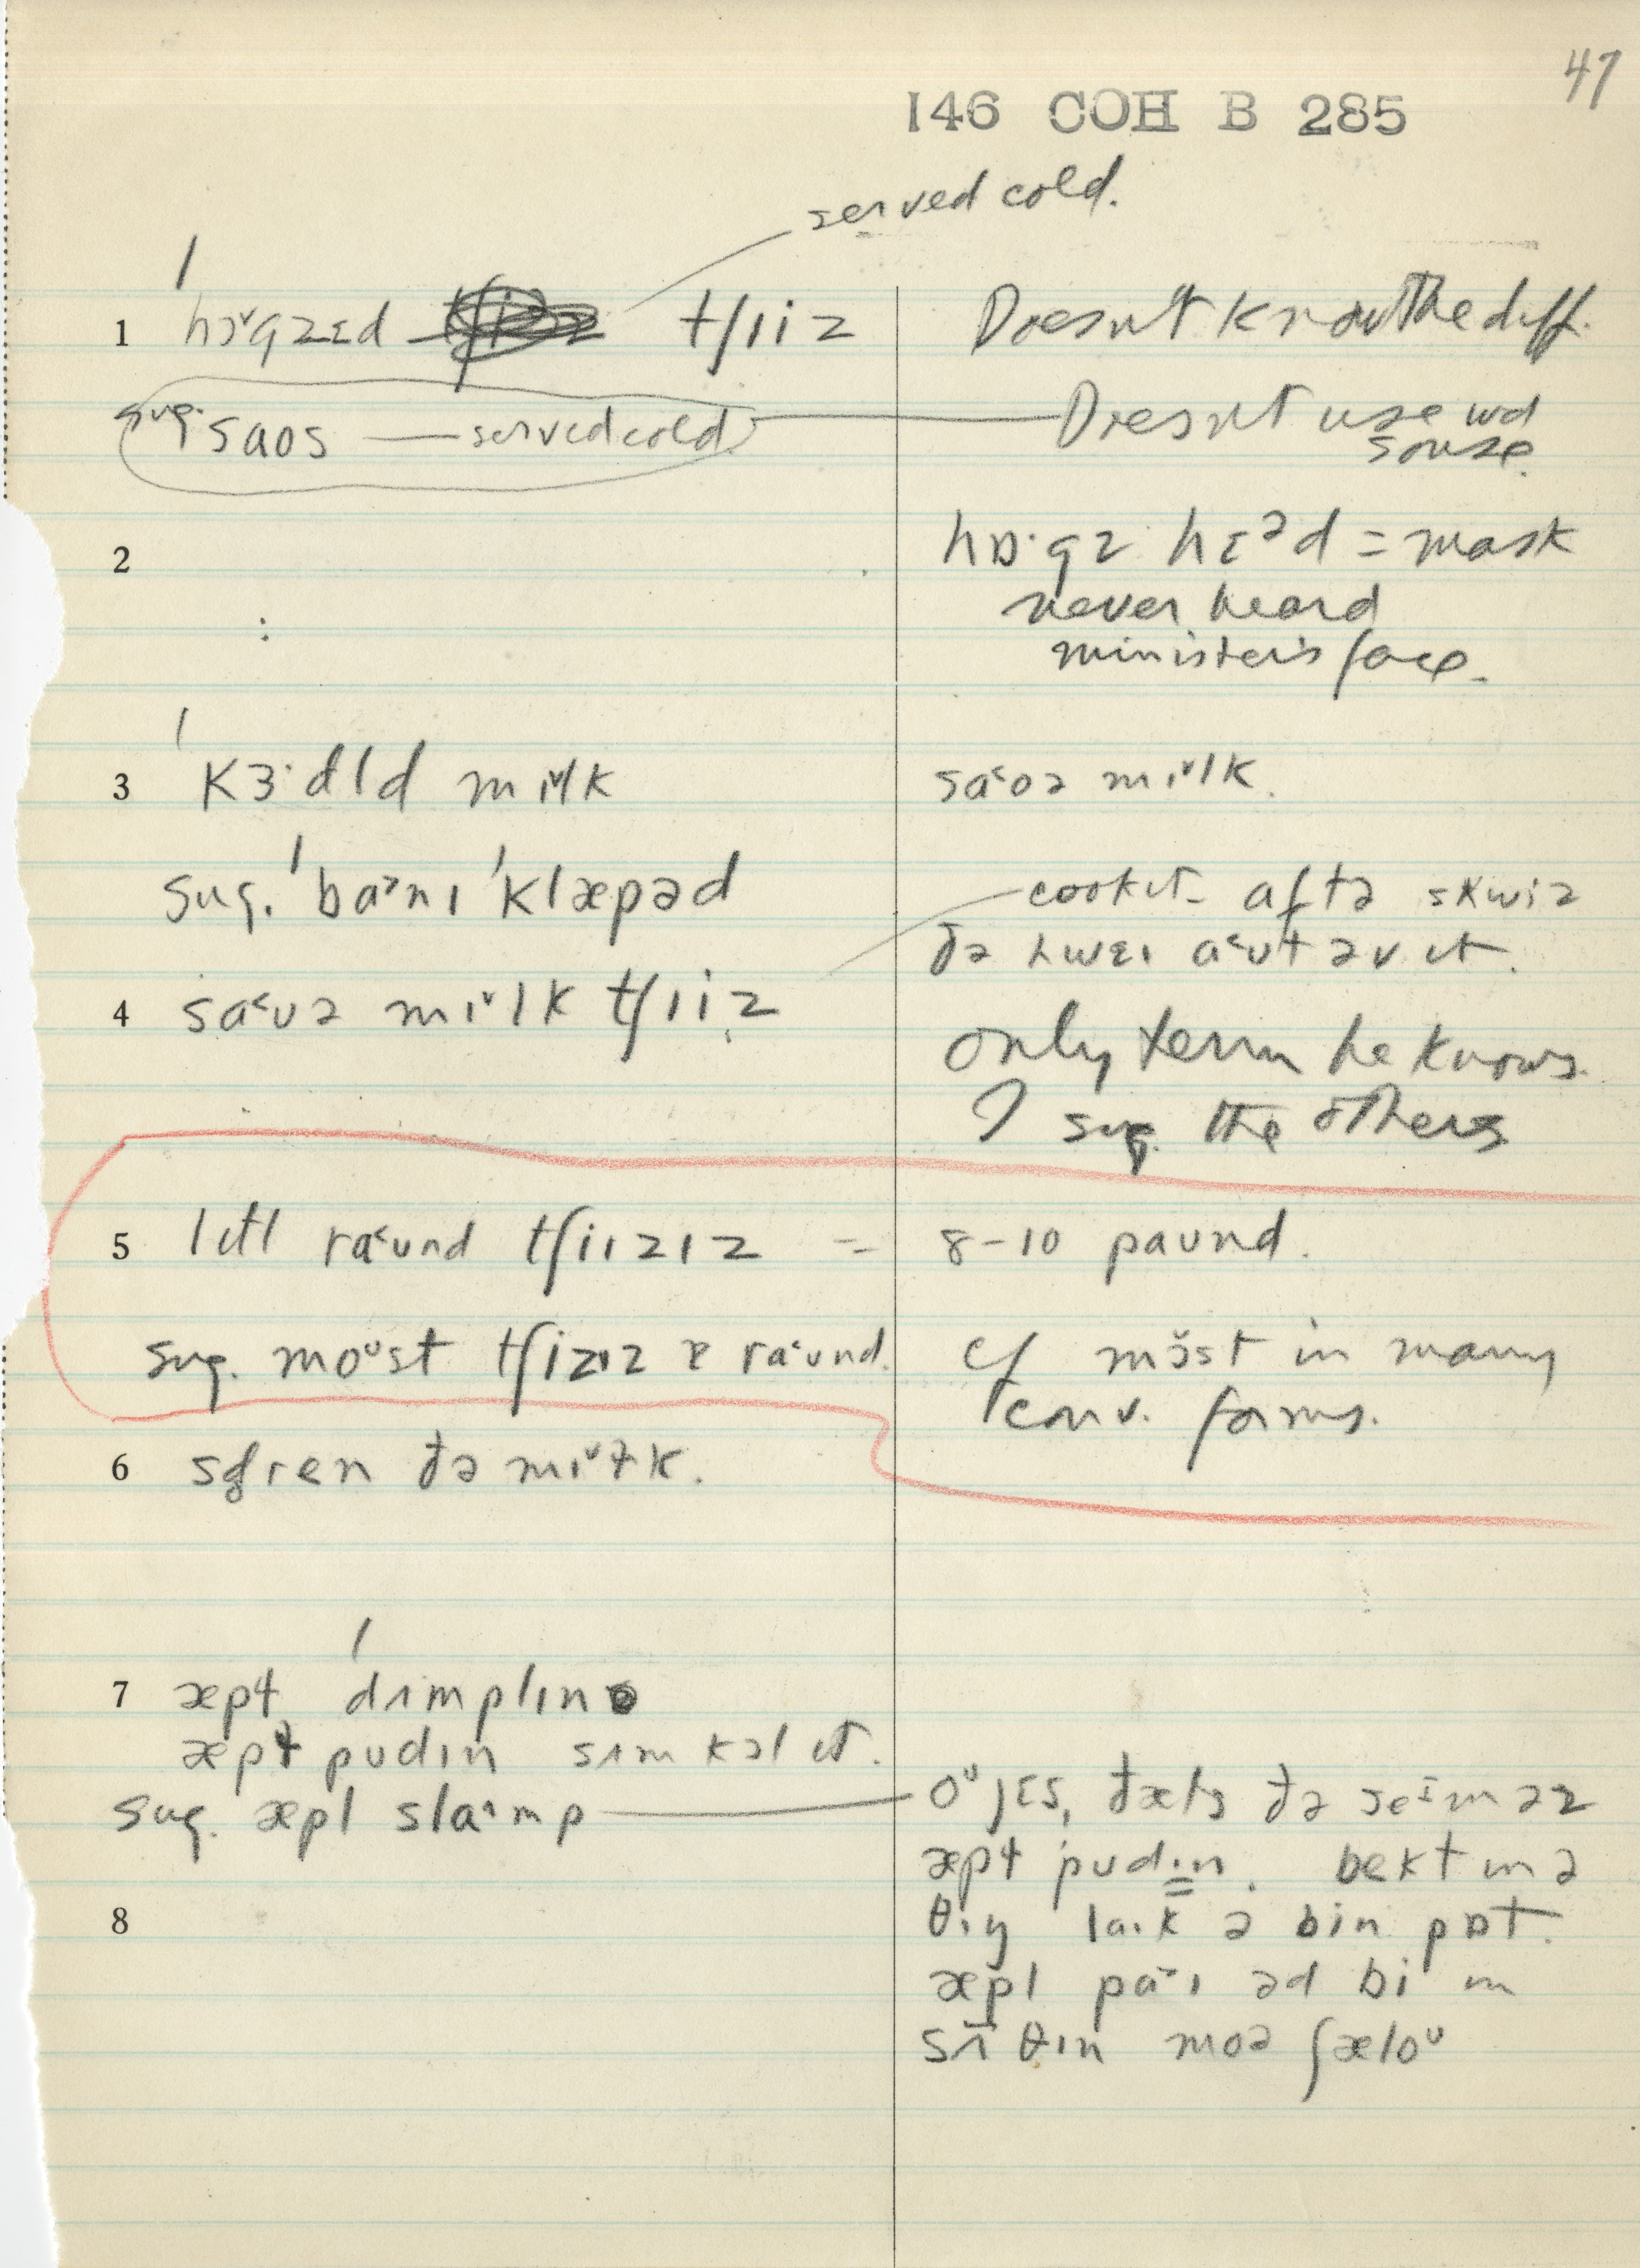 47
146 COH B 285
served cold.
1 hɔ˅gzɛd tʃiiz Doesn't know the diff.
sug. saos — served cold. Doesn't use wd
souse.
2 hɒ·gz hɛᵊd = mask
never heard
minister's face.
3 ˈkɜ·dld mɪ˅lk sa˂oə mɪ˅lk.
sug. ˈba˃nɪ ˈklæpəd cook it – aftə skwiz
ðə hwɛɪ a˂ut əv ɪt.
4 sa˂uə mɪ˅lk tʃiiz only term he knows.
I sug. the others
5 lɪtl ra˂und tʃiɪzɪz = 8–10 paund.
sug. moᵘst tʃizɪz ɐ ra˂und. cf mɔ̆st in many
conv. forms.
6 ðə mɪ˅ɫk.
7 æpɫ dʌmplɪn
æpɫ pudɪn sʌm kɔl ɪt.
sug. æpl sla˄mp oᵘ jɛs, ðæts ðə seɪm əz
æpɫ pudɪn. bekt ɪn ə
8 θɪŋ laɪk ə bin pɒt.
æpl pa˃ɪ əd bi ɪn
sʌ̃θɪn moə ʃæloᵘ